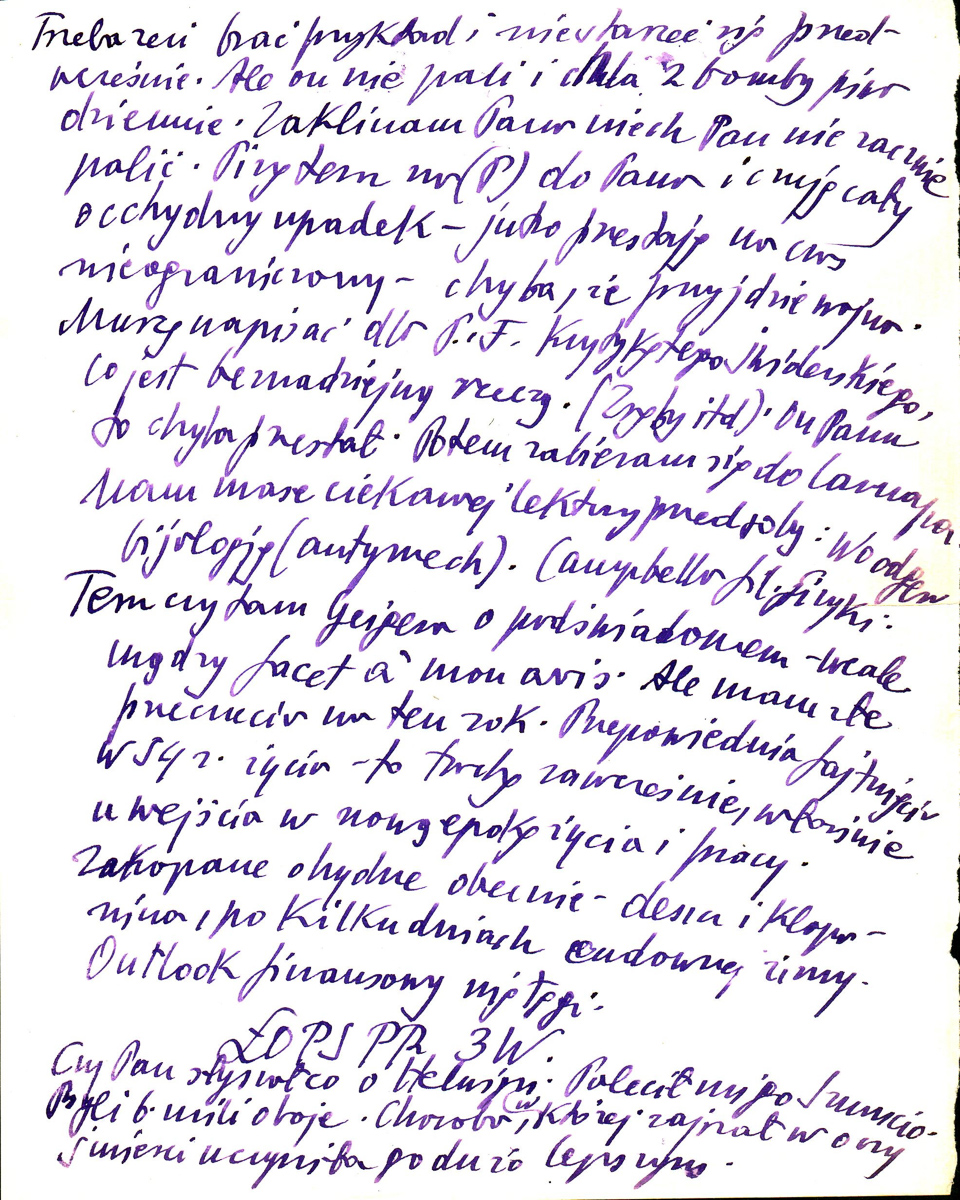 Trzeba zeń brać przykład i nie starzeć się przed-
wcześnie. Ale on nie pali i chla 2 bomby piw
dziennie. Zaklinam Pana niech Pan nie zacznie
palić. Piszę ten nr (P) do Pana i czuję cały
occhydny upadek – jutro przestaję na czas
nieograniczony – chyba, że przyjdzie wojna.
Muszę napisać dla P.F. Krytykę tego Świderskiego,
co jest beznadziejną rzeczą. (Zręby itd). On Panu
to chyba przestał. Potem zabieram się do Carnapa.
Mam masę ciekawej lektury przed sobą: Woodgera
bijologję (antymech). Campbella fil. fizyki.
Teraz czytam Geigera o podświadomem – wcale
mądry facet à mon avis. Ale mam złe
przeczucia na ten rok. Przepowiednia fajtnięcia
w 54 r. życia – to trochę zawcześnie, właśnie
u wejścia w nową epokę życia i pracy.
Zakopane ohydne obecnie – deszcz i chlapa-
nina, po kilku dniach cudownej zimy.
Outlook finansowy nietęgi.
ŁOPS PR 3W.
Czy Pan słyszał co o Polecił mi go Szumcio.
Byli b. mili oboje. Choroba, w której zajrzał w oczy
śmierci uczyniła go dużo lepszym.